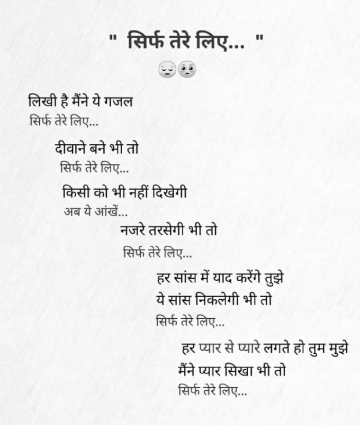 " सिर्फ तेरे लिए... "
😔🥺
लिखी है मैंने ये गजल
सिर्फ तेरे लिए...
दीवाने बने भी तो
सिर्फ तेरे लिए...
किसी को भी नहीं दिखेगी
अब ये आंखें...
नजरे तरसेगी भी तो
सिर्फ तेरे लिए...
हर सांस में याद करेंगे तुझे
ये सांस निकलेगी भी तो
सिर्फ तेरे लिए...
हर प्यार से प्यारे लगते हो तुम मुझे
मैंने प्यार सिखा भी तो
सिर्फ तेरे लिए...